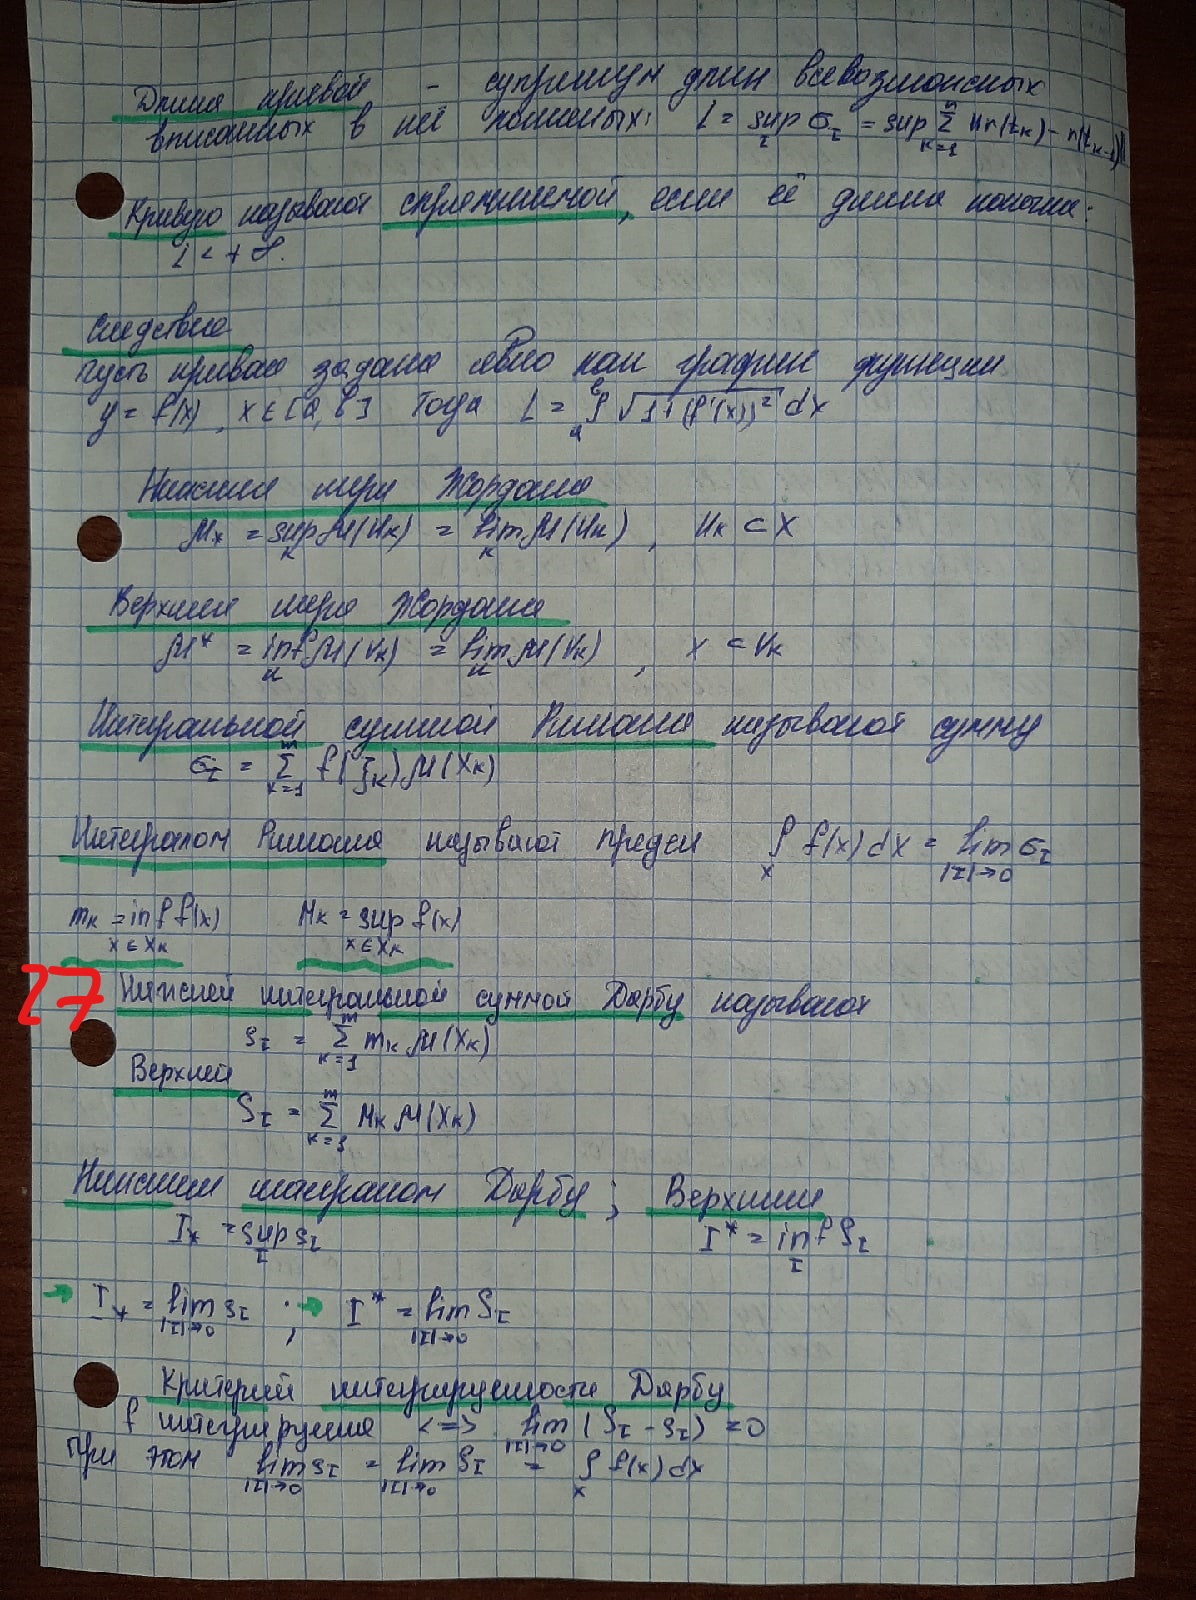 Длина кривой - супремум длин всевозможных
вписанных в неё ломаных: L = sup_τ σ_τ = sup Σ_{k=1}^{m} ||r(t_k) - r(t_{k-1})||
Кривую называют спрямляемой, если её длина конечна:
L < +∞.
Следствие
Пусть кривая задана явно как график функции
y = f(x), x ∈ [a, b] Тогда L = ∫_a^b √(1+(f'(x))²) dx
Нижняя мера Жордана
μ_* = sup_k μ(U_k) = lim_k μ(U_k), U_k ⊂ X
Верхняя мера Жордана
μ^* = inf_k μ(V_k) = lim_k μ(V_k), X ⊂ V_k
Интегральной суммой Римана называют сумму
σ_τ = Σ_{k=1}^{m} f(ξ_k) μ(X_k)
Интегралом Римана называют предел ∫_X f(x) dx = lim_{|τ|→0} σ_τ
m_k = inf_{x ∈ X_k} f(x) M_k = sup_{x ∈ X_k} f(x)
27 Нижней интегральной суммой Дарбу называют
s_τ = Σ_{k=1}^{m} m_k μ(X_k)
Верхней
S_τ = Σ_{k=1}^{m} M_k μ(X_k)
Нижним интегралом Дарбу ; Верхним
I_* = sup_τ s_τ I^* = inf_τ S_τ
→ I_* = lim_{|τ|→0} s_τ ; → I^* = lim_{|τ|→0} S_τ
Критерий интегрируемости Дарбу
f интегрируема <=> lim_{|τ|→0} (S_τ - s_τ) = 0
При этом lim_{|τ|→0} s_τ = lim_{|τ|→0} S_τ = ∫_X f(x) dx